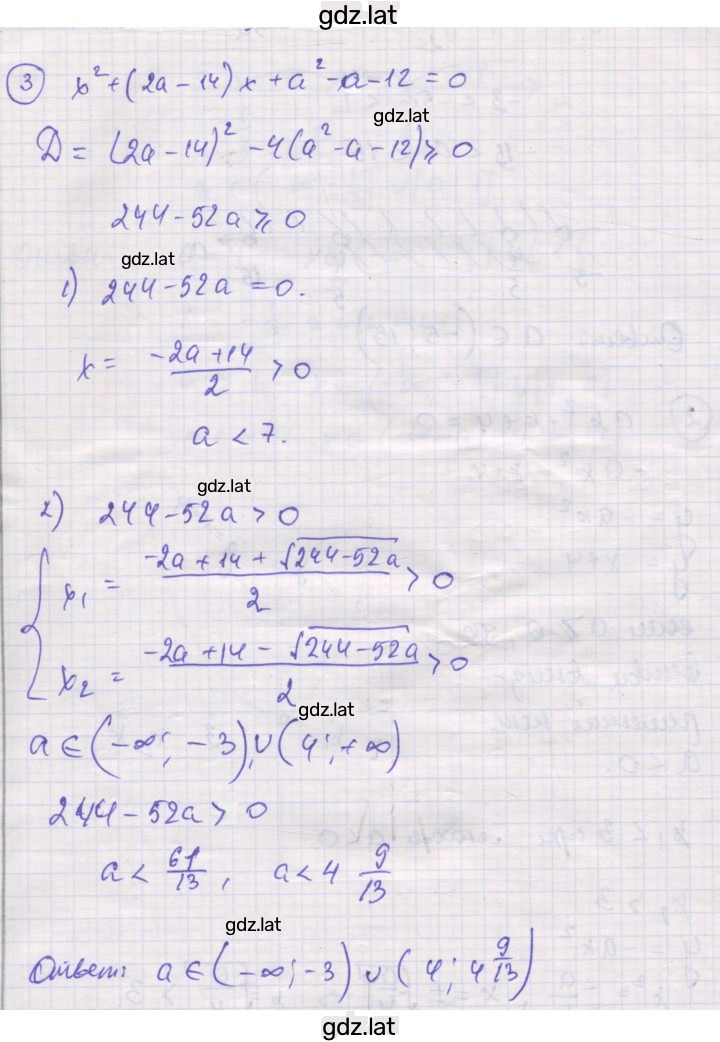 gdz.lat
3 x² + (2a - 14) x + a² - a - 12 = 0
gdz.lat
D = (2a - 14)² - 4(a² - a - 12) ⩾ 0
244 - 52a ⩾ 0
gdz.lat
1) 244 - 52a = 0.
x = (-2a + 14)/2 > 0
gdz.lat
a < 7.
gdz.lat
2) 244 - 52a > 0
{ x₁ = (-2a + 14 + √(244-52a))/2 > 0
x₂ = (-2a + 14 - √(244-52a))/2 > 0
gdz.lat
a ∈ (-∞; -3) ∪ (4; +∞)
244 - 52a > 0
a < 61/13, a < 4 9/13
gdz.lat
Ответ: a ∈ (-∞; -3) ∪ (4; 4 9/13)
gdz.lat